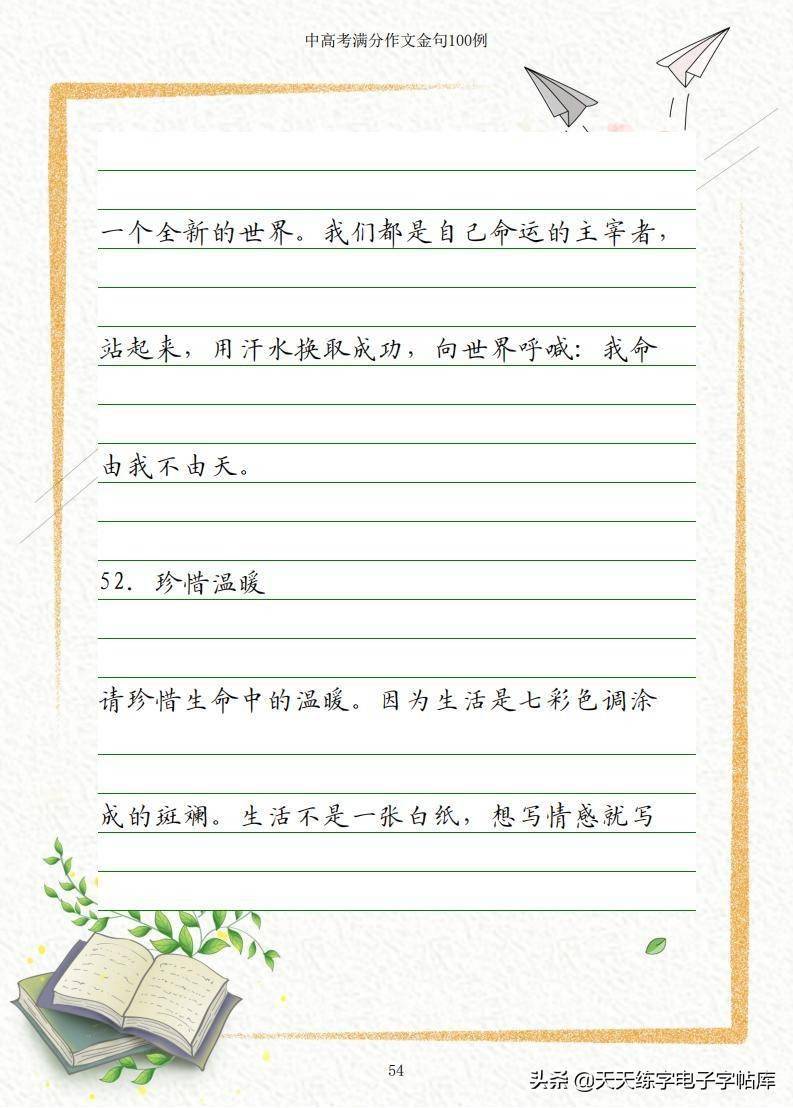 中高考满分作文金句100例
一个全新的世界。我们都是自己命运的主宰者，
站起来，用汗水换取成功，向世界呼喊：我命
由我不由天。
52. 珍惜温暖
请珍惜生命中的温暖。因为生活是七彩色调涂
成的斑斓。生活不是一张白纸，想写情感就写
54
头条 @天天练字电子字帖库